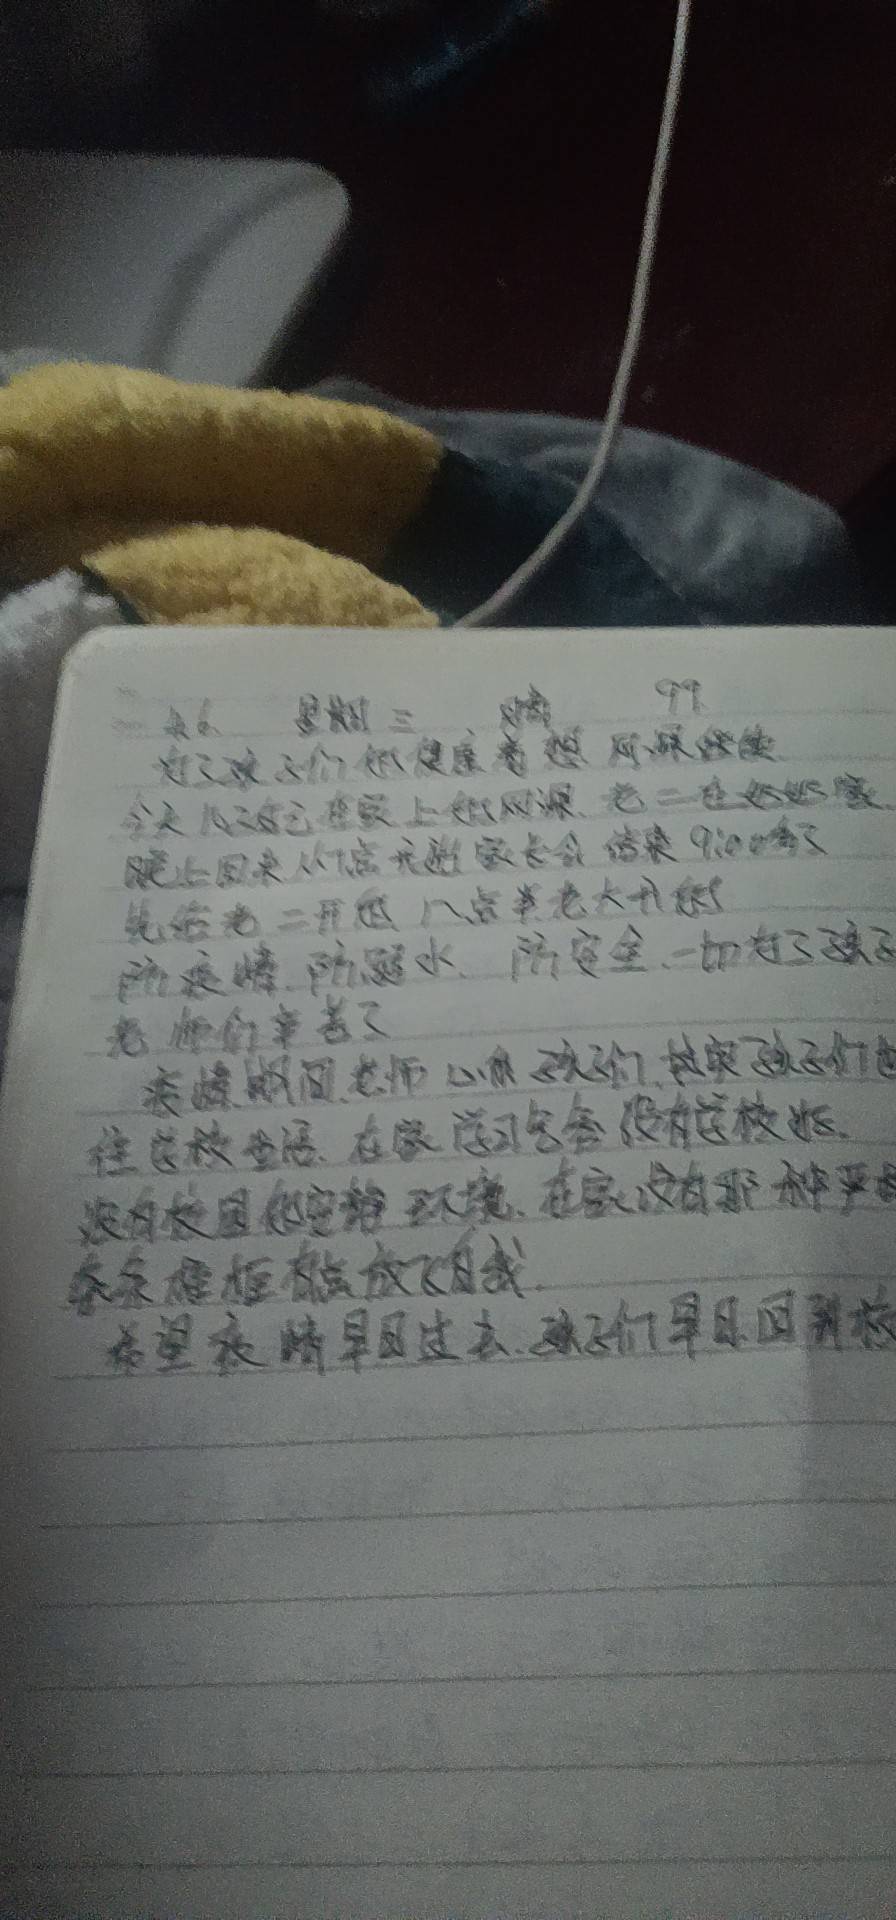 星期三 晴 99
为了孩子们的健康着想 网课继续
今天 在家上的网课、老二在 家
晚上回来 点 家长会 结束 9:00多了
先给老二开的 八点半老大开的
防疫情、防溺水、防安全、一切为了孩子
老师们辛苦了
疫情期间、老师 孩子们、 孩子们
往学校 、在家学习 没有学校好、
没有校园的安静环境、在家没有那种严
有点放飞自我
希望疫情早日过去、孩子们早日回到校